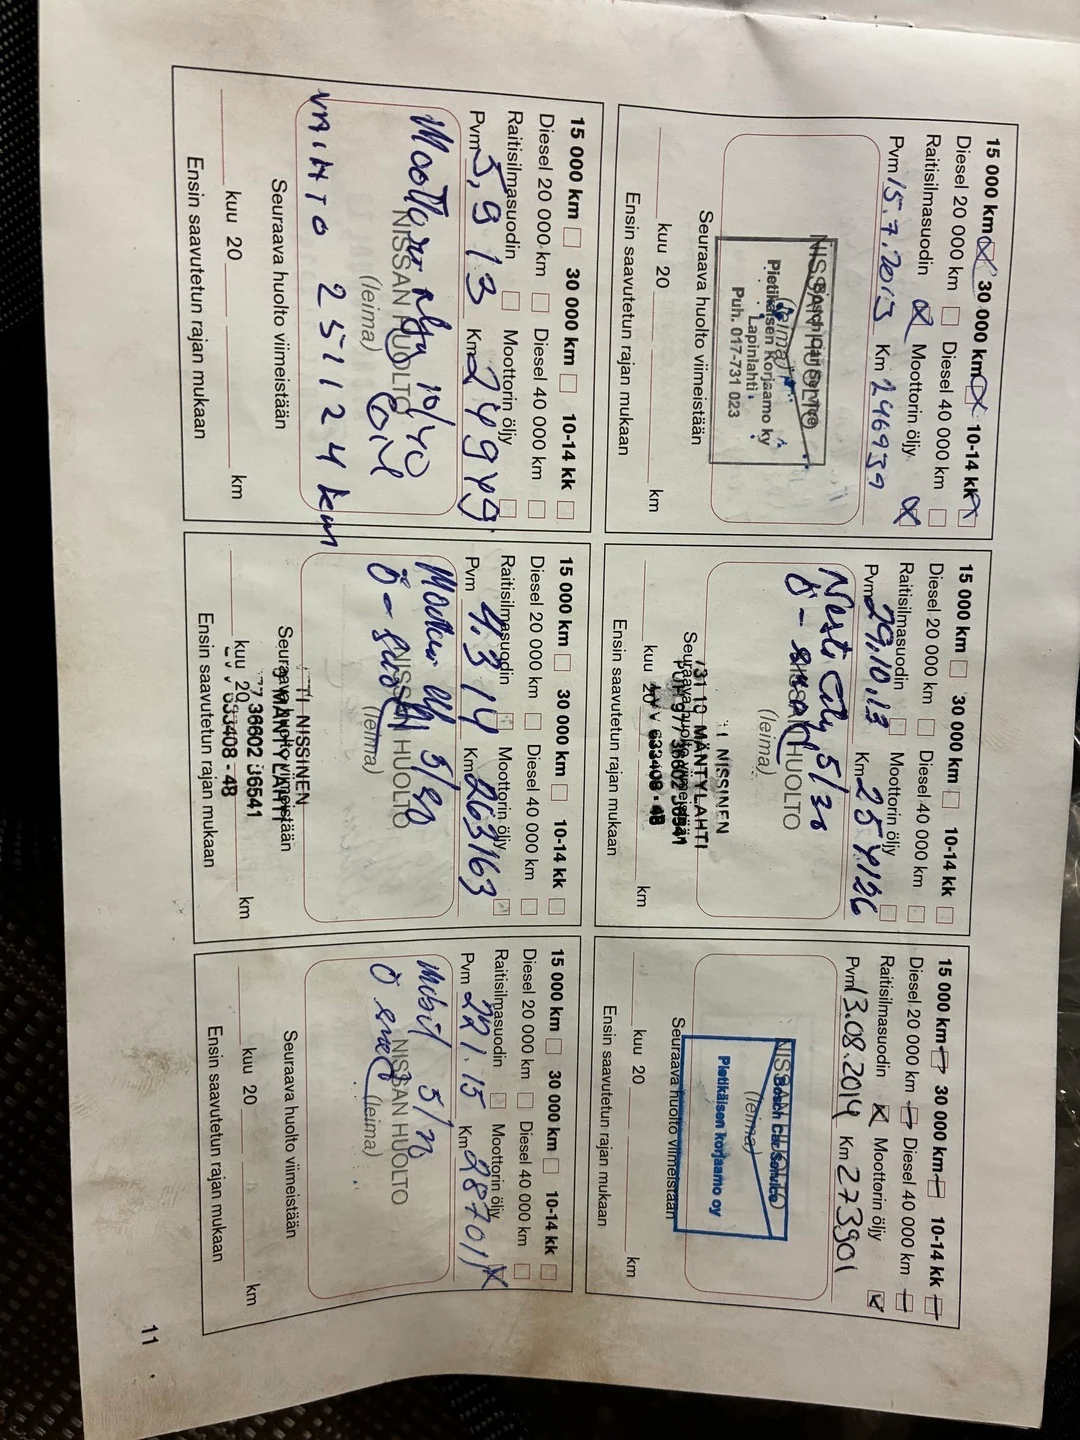 15 000 km 30 000 km 10-14 kk
Diesel 20 000 km Diesel 40 000 km
Raitisilmasuodin Moottorin öljy
Pvm 15.7.2013 Km 246939
NISSAN HUOLTO
(leima)
Bosch Car Service
Pietikäisen Korjaamo Ky
Lapinlahti
Puh. 017-731 023
Seuraava huolto viimeistään
kuu 20 km
Ensin saavutetun rajan mukaan
15 000 km 30 000 km 10-14 kk
Diesel 20 000 km Diesel 40 000 km
Raitisilmasuodin Moottorin öljy
Pvm 29.10.13 Km 254126
Neste City 5/30
NISSAN HUOLTO
(leima)
NISSINEN
73110 MÄNTYLAHTI
Seuraava huolto viimeistään
633408 - 4B
kuu 20 km
Ensin saavutetun rajan mukaan
15 000 km 30 000 km 10-14 kk
Diesel 20 000 km Diesel 40 000 km
Raitisilmasuodin X Moottorin öljy X
Pvm 13.08.2014 Km 273901
NISSAN HUOLTO
(leima)
Bosch Car Service
Pietikäisen Korjaamo oy
Seuraava huolto viimeistään
kuu 20 km
Ensin saavutetun rajan mukaan
15 000 km 30 000 km 10-14 kk
Diesel 20 000 km Diesel 40 000 km
Raitisilmasuodin Moottorin öljy
Pvm 5,9 13 Km 249949
10/40
NISSAN HUOLTO
(leima)
VAIHTO 251124 km
Seuraava huolto viimeistään
kuu 20 km
Ensin saavutetun rajan mukaan
15 000 km 30 000 km 10-14 kk
Diesel 20 000 km Diesel 40 000 km
Raitisilmasuodin Moottorin öljy
Pvm 4.3 14 Km 263163
NISSAN HUOLTO
(leima)
NISSINEN
MÄNTYLAHTI
Seuraava huolto viimeistään
36602 36541
kuu 20 km
633408 - 4B
Ensin saavutetun rajan mukaan
15 000 km 30 000 km 10-14 kk
Diesel 20 000 km Diesel 40 000 km
Raitisilmasuodin Moottorin öljy
Pvm 22 1.15 Km 28701
Mobil 5/30
NISSAN HUOLTO
(leima)
Seuraava huolto viimeistään
kuu 20 km
Ensin saavutetun rajan mukaan
11